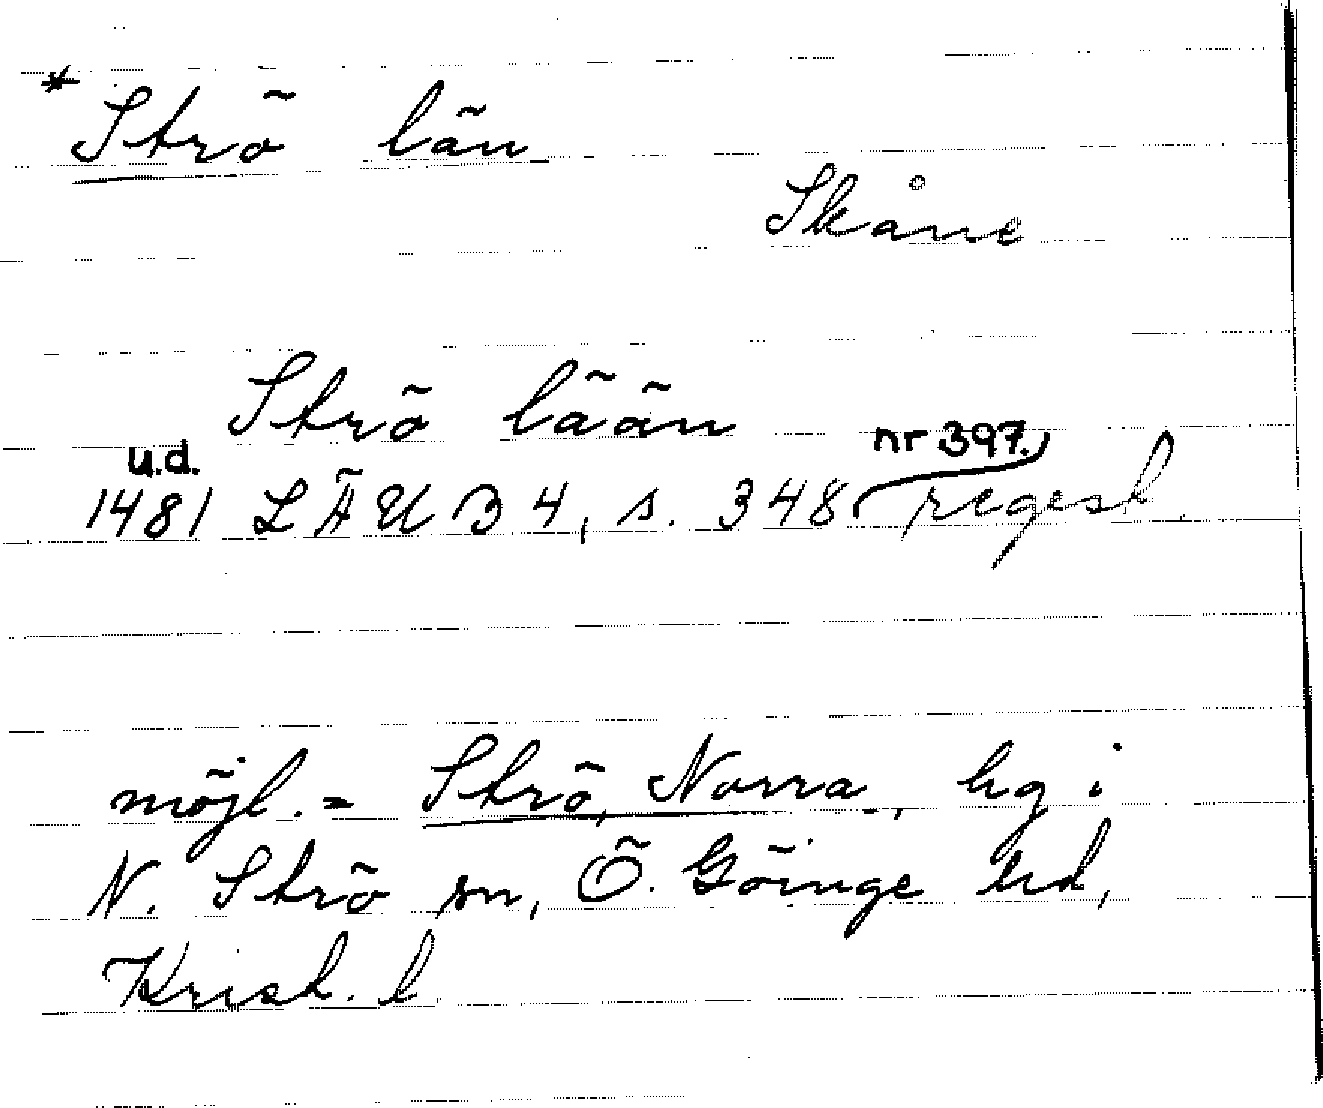 * Strö län
Skåne
Strö lään
u.d. nr 397.
1481 LÄUB 4, s. 348 regest
möjl. = Strö, Norra, hg i
N. Strö sn, Ö. Göinge hd,
Krist. l